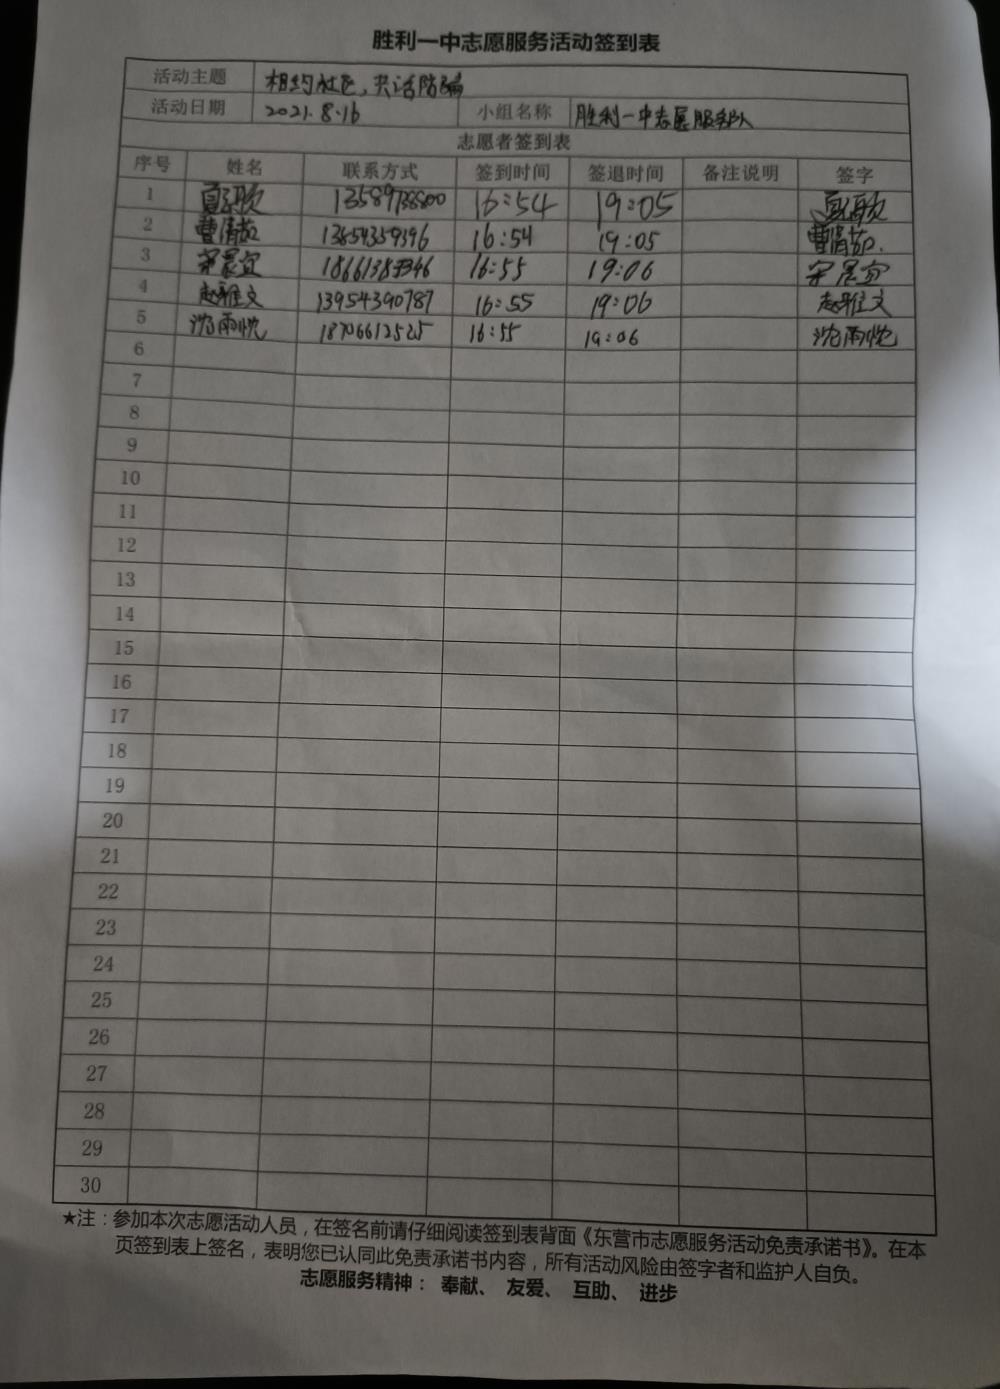 胜利一中志愿服务活动签到表
活动主题 相约社区,共话防骗
活动日期 2021.8.16 小组名称 胜利一中志愿服务队
志愿者签到表
序号 姓名 联系方式 签到时间 签退时间 备注说明 签字
1 16:54 19:05
2 曹倩茹 13854359396 16:54 19:05 曹倩茹.
3 宋晨宜 16:55 19:06 宋晨宜
4 赵雅文 13954390787 16:55 19:06 赵雅文
5 沈雨悦 18706612525 16:55 19:06 沈雨悦
6
7
8
9
10
11
12
13
14
15
16
17
18
19
20
21
22
23
24
25
26
27
28
29
30
★注:参加本次志愿活动人员,在签名前请仔细阅读签到表背面《东营市志愿服务活动免责承诺书》。在本
页签到表上签名,表明您已认同此免责承诺书内容,所有活动风险由签字者和监护人自负。
志愿服务精神: 奉献、 友爱、 互助、 进步